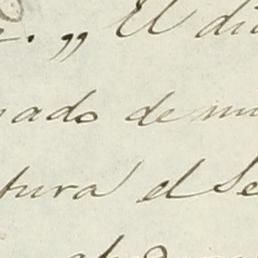 . „ El dia
ado de mi
tura el Se